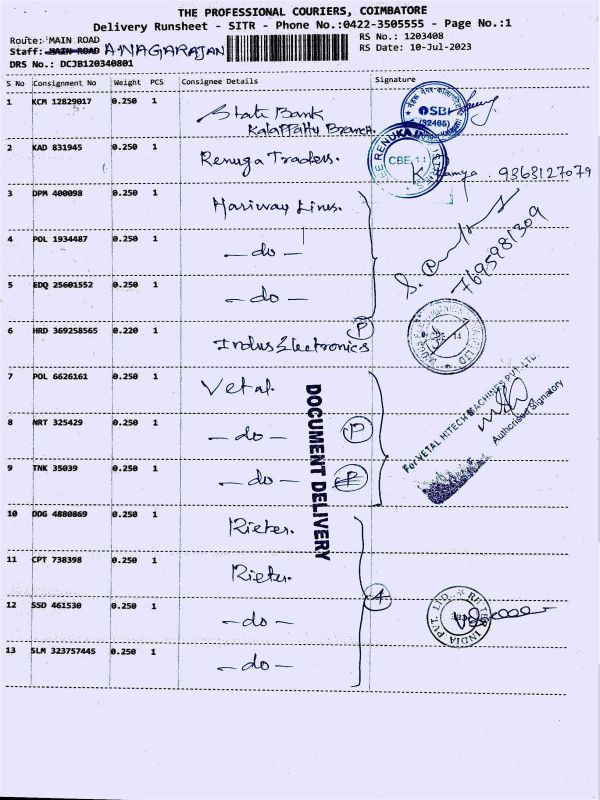 THE PROFESSIONAL COURIERS, COIMBATORE
Delivery Runsheet - SITR - Phone No.:0422-3505555 - Page No.:1
Route: MAIN ROAD
RS No.: 1203408
Staff: MAIN ROAD A.NAGARAJAN
RS Date: 10-Jul-2023
DRS No.: DCJB120340801
S No Consignment No Weight PCS Consignee Details Signature
1 KCM 12829017 0.250 1 State Bank
Kalappatty Branch.
SBI
(92465)
2 KAD 831945 0.250 1 Renuga Traders.
CBE-14
9363127079
3 DPM 400098 0.250 1 Hariway Lines.
4 POL 1934487 0.250 1 - do -
7695981309
5 EDQ 25601552 0.250 1 - do -
6 HRD 369258565 0.220 1 Indus Electronics P
7 POL 6626161 0.250 1 Vetal.
For VETAL HITECH MACHINES PVT. LTD.
Authorised Signatory
8 NRT 325429 0.250 1 - do - P
9 TNK 35039 0.250 1 - do - P
DOCUMENT DELIVERY
10 DDG 4880869 0.250 1 Rieter.
11 CPT 738398 0.250 1 Rieter.
4
12 SSD 461530 0.250 1 - do -
RIETER INDIA PVT. LTD.
13 SLM 323757445 0.250 1 - do -